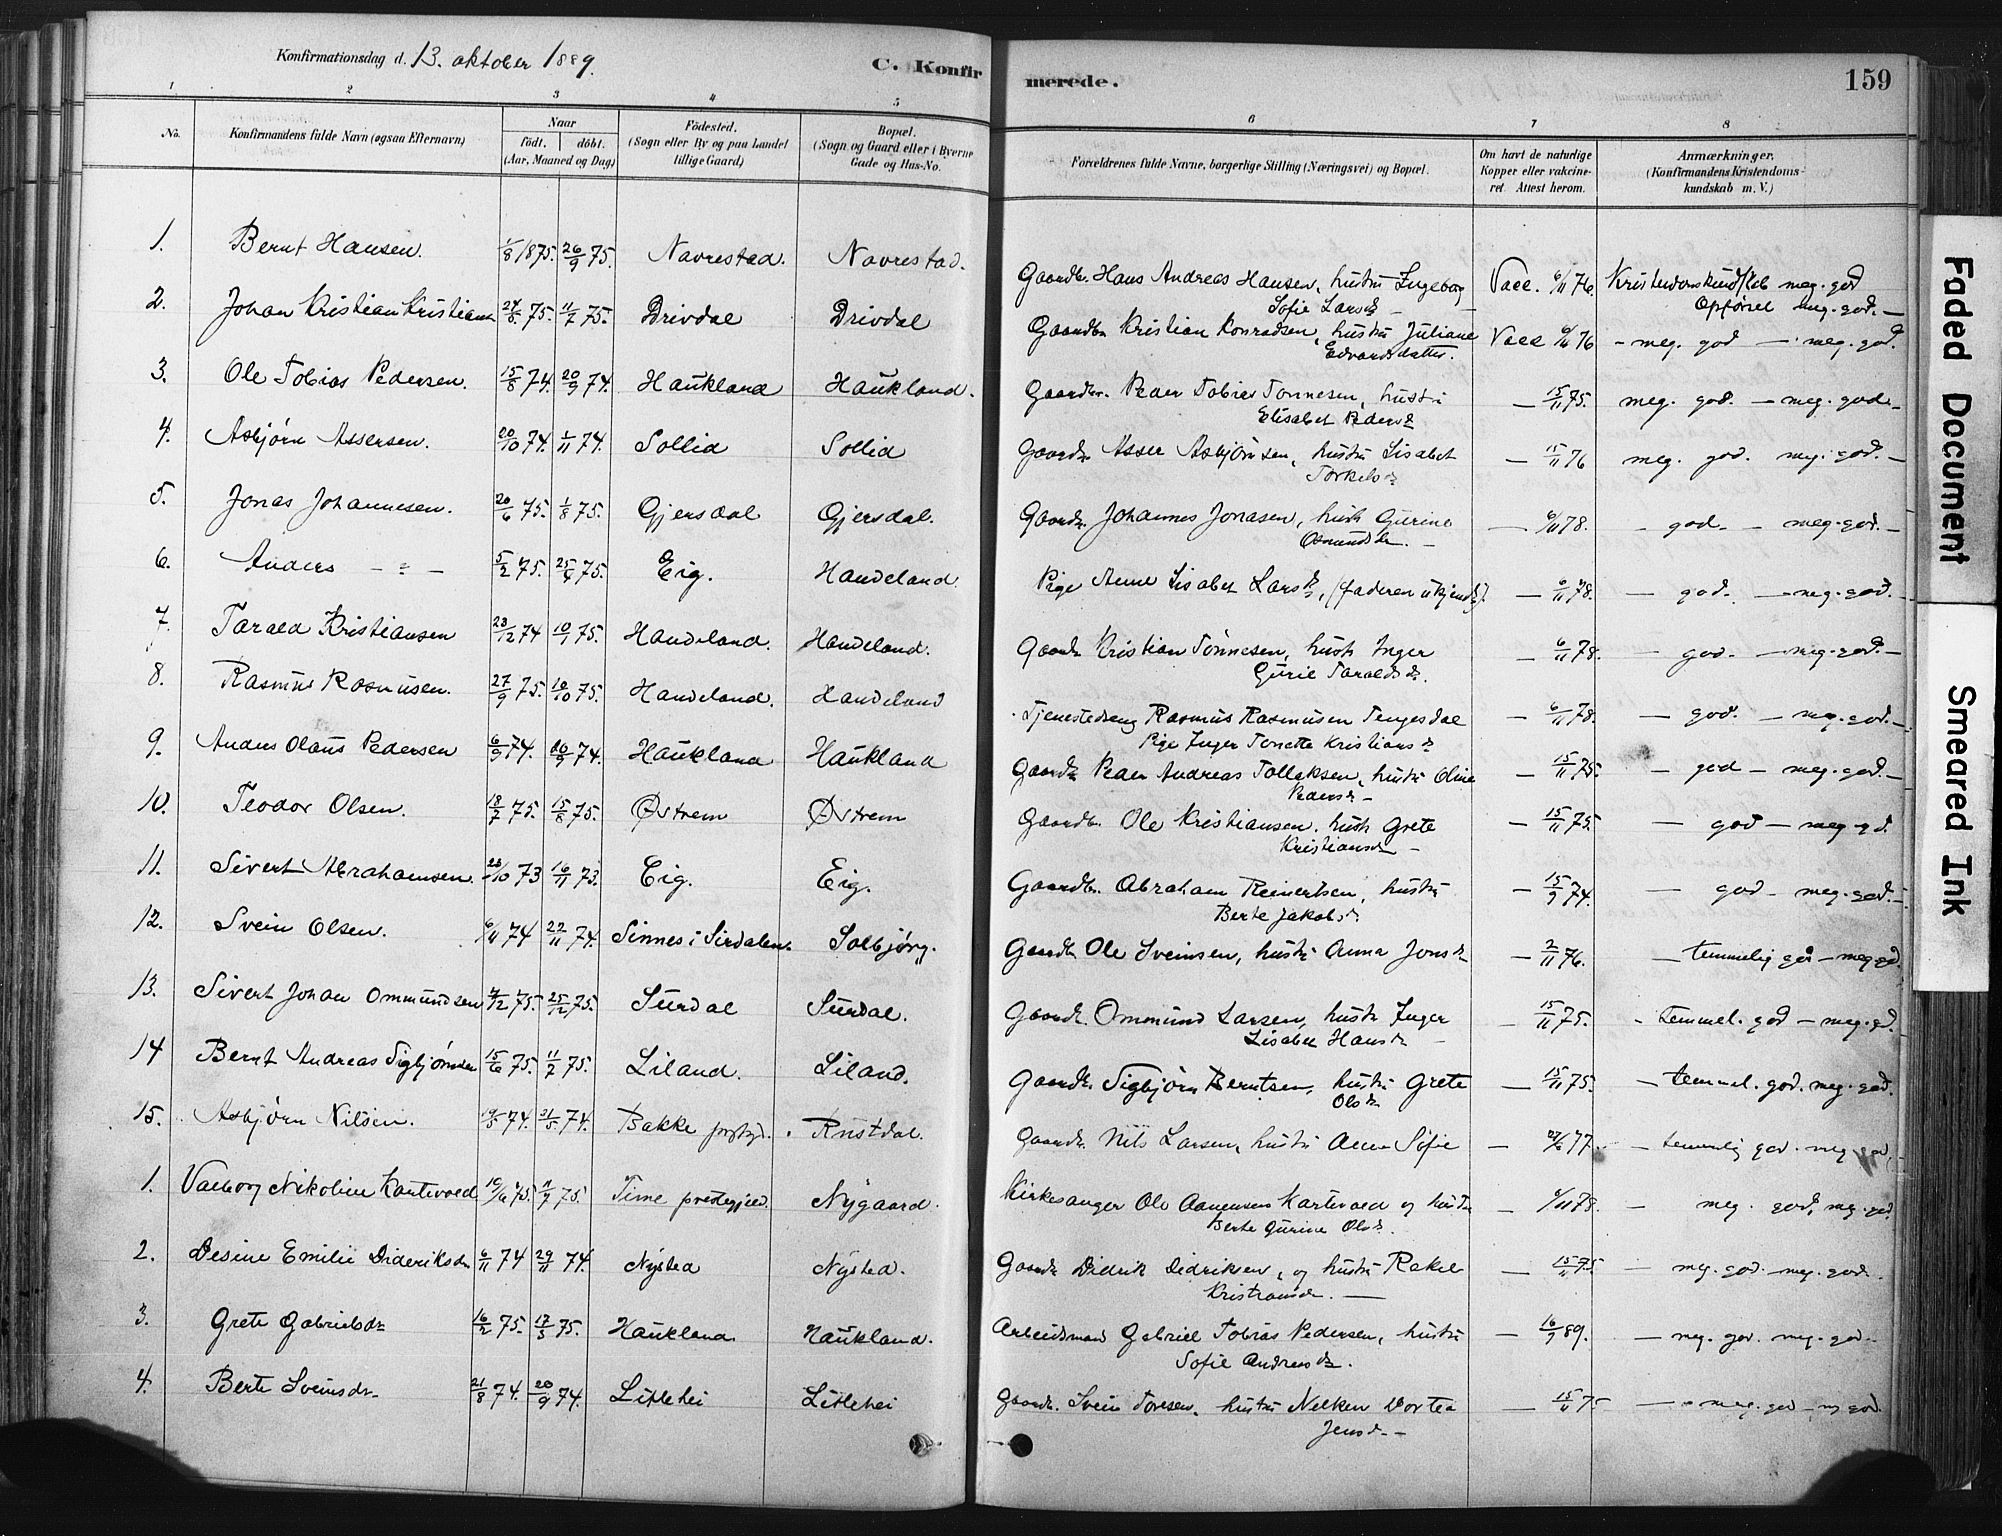 Konfirmationsdag d. 13. oktober 1889.
C. Konfir
merede.
159
1 2 3 4 5 6 7 8
No.
Konfirmandens fulde Navn (ogsaa Efternavn)
Naar
født. døbt.
(Aar, Maaned og Dag)
Fødested.
(Sogn eller By og paa Landet
tillige Gaard)
Bopæl.
(Sogn og Gaard eller i Byerne
Gade og Hus-No.
Forældrenes fulde Navne, borgerlige Stilling (Næringsvei) og Bopæl.
Om havt de naturlige
Kopper eller vakcine-
ret. Attest herom.
Anmærkninger.
(Konfirmandens Kristendoms-
kundskab m. V.)
1. Bernt Hansen. 1/8 1875. 26/9 75. Navrestad. Navrestad. Gaardbr. Hans Andreas Hansen, hustru Ingeborg Vacc. 6/11 76. meg. god
Sofie Larsd. Opførsel meg. god.
2. Johan Kristian Kristiansen 75. 11/7 75. Drivdal Drivdal Gaardbr. Kristian Konradsen, hustru Juliane Vacc 6/11 76 - meg. god - meg. god.
Edvardsdatter.
3. Ole Tobias Pedersen. 15/8 74. 20/9 74. Haukland Haukland. Gaardbr. Peder Tobias Tønnesen, hustru - 15/11 75. meg. god. - meg. god.
Elisabet Pedersd.
4. Asbjørn Assersen. 20/10 74. 1/11 74. Sollid Sollid Gaardbr Asser Asbjørnsen, hustru Lisabet - 15/11 76 meg. god. meg. god.
Torkelsd.
5. Jonas Johannesen. 20/6 75. 1/8 75. Gjersdal Gjersdal. Gaardbr. Johannes Jonasen, hustr Gurine - 6/11 78. - god - meg. god.
Osmundsdr.
6. Anders - " - 5/2 75. 25/4 75. Eig. Handeland. Pige Anne Lisabet Larsd., (faderen ukjendt). - 6/11 78. - god. - meg. god.
7. Tarald Kristiansen 23/12 74 10/1 75. Handeland. Handeland. Gaardbr Kristian Tønnesen, hustr Inger - 6/11 78. - god. - meg. god.
Gurie Taraldsdr.
8. Rasmus Rasmusen. 27/9 75. 10/10 75. Handeland. Handeland Tjenestedreng Rasmus Rasmusen Tengesdal - 6/11 78. - god. - meg. god.
Pige Inger Tonette Kristiansd
9. Anders Olaus Pedersen 6/9 74. 20/9 74. Haukland Haukland Gaardbr Peder Andreas Tollaksen, hustru Oline - 15/11 75. - god - meg. god.
Pedersdr
10. Teodor Olsen. 18/7 75. 15/8 75. Østrem Østrem Gaardbr. Ole Kristiansen. hustr Grete - 15/11 75. - god - meg. gd.
Kristiansdr
11. Sivert Abrahamsen. 23/10 73 16/11 73. Eig. Eig. Gaardbr. Abraham Reinertsen, hustru - 15/9 74. - god - meg. god.
Berte Jakobsd.
12. Svein Olsen. 6/11 74 22/11 74. Sinnes i Sirdalen. Solbjørg. Gaardbr Ole Sveinsen, hustru Anna Jonsdr - 2/11 76. - temmelig god - meg. gd.
13. Sivert Johan Ommundsen 75. 25/12 75. Surdal Surdal. Gaardbr. Ommund Larsen, hustr Inger - 15/11 75. - temmel. god - meg. gd.
Lisabet Hansdr
14 Bernt Andreas Sigbjørnsen 15/6 75. 11/7 75. Liland. Liland. Gaardbr. Sigbjørn Berntsen, hustru Grete - 15/11 75. - temmel. god. meg. god.
Olsdr
15. Asbjørn Nilsen. 19/5 74. 31/5 74. Bakke Rustdal. Gaardbr. Nils Larsen, hustru Anne Sofie - 77. - temmelig god. meg god.
1. Valborg Nikoline Kartevold 19/6 75. 11/7 75. Time prestegjeld. Nygaard. Kirkesanger Ole Aanensen Kartevold og hustr - 6/11 78. - meg. god, meg. god.
Berte Gurine Olsdr.
2. Desine Emilie Dideriksdr 6/11 74 29/11 74. Nysted Nysted. Gaardbr Didrik Didriksen, og hustru Rakel - 15/11 75 - meg. god. meg. god.
Kristiansdr.
3. Grete Gabrielsdr 16/2 75. 17/3 75. Haukland Haukland. Arbeidsmand Gabriel Tobias Pedersen, hustru - 16/9 89. - meg. god. meg. god.
Sofie Andreasdr.
4. Berte Sveinsdr. 21/8 74. 20/9 74. Litlehei Litlehei Gaardbr. Svein Toresen. hustru Nelken Dortea - 15/11 75 - meg. god - mg god.
Jensdr
Faded Document
Smeared Ink